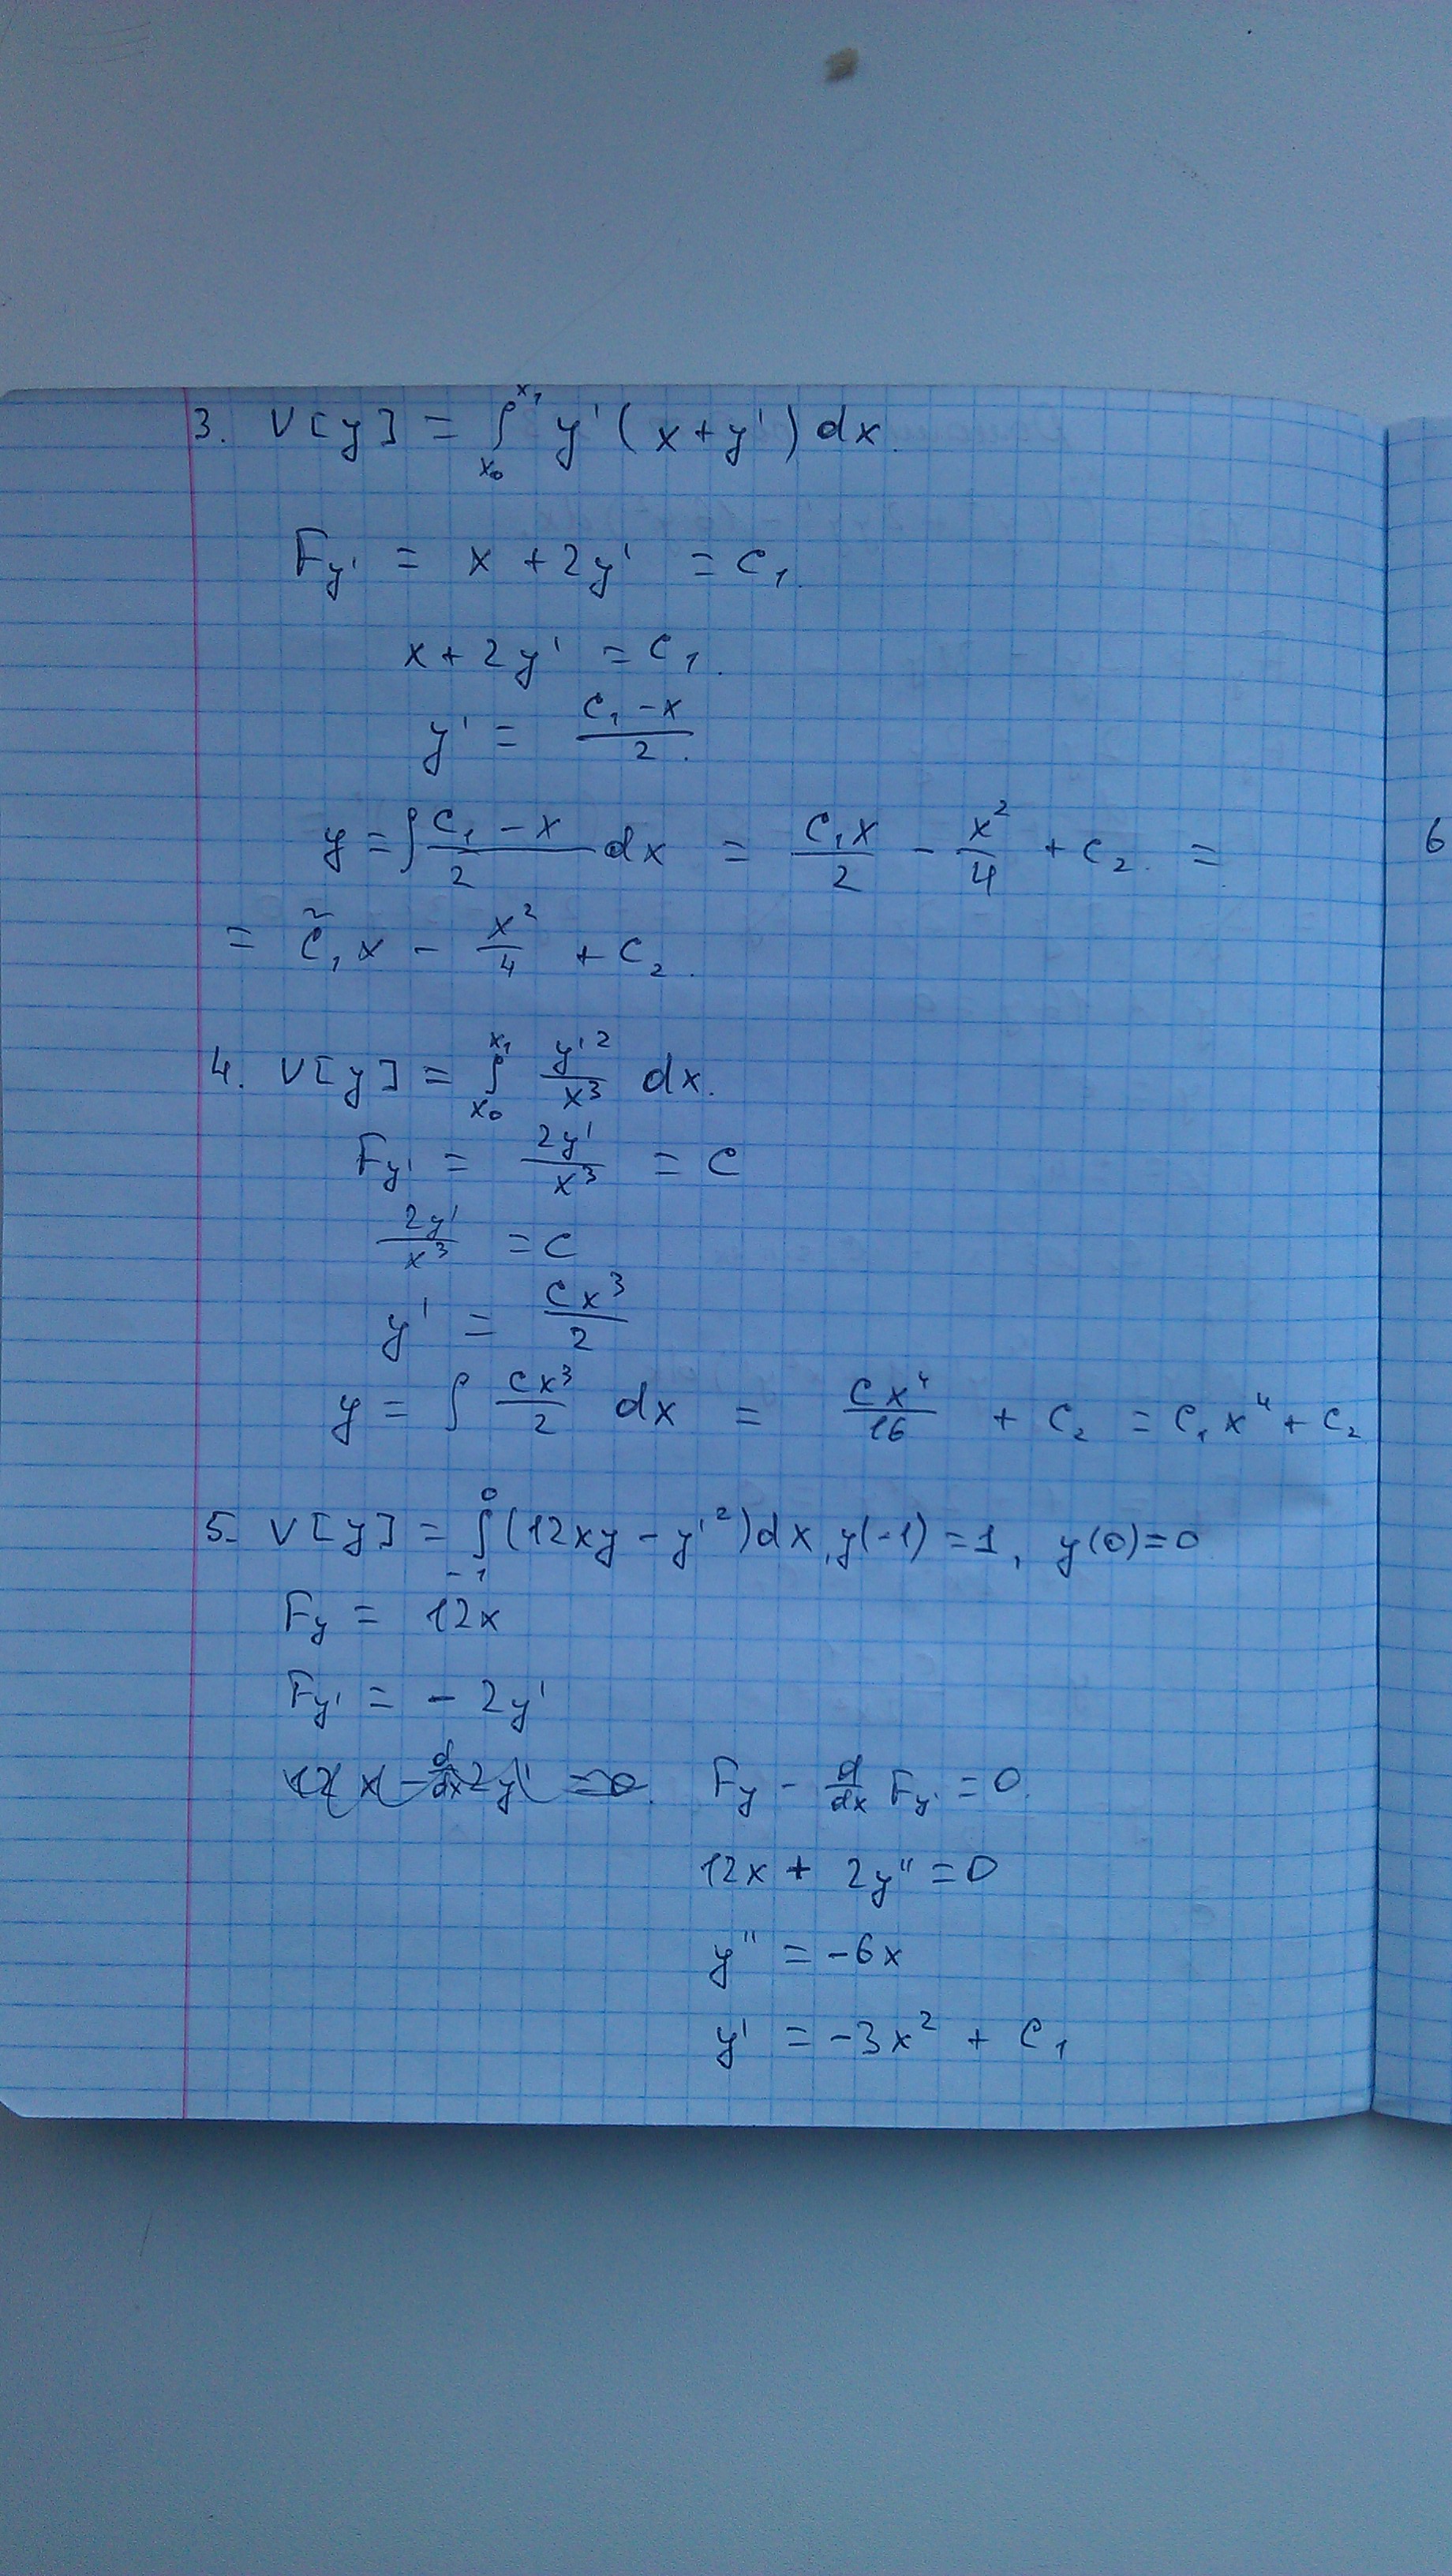 3. V[y] = ∫_{x₀}^{x₁} y'(x+y')dx.
F_{y'} = x + 2y' = C₁.
x + 2y' = C₁.
y' = (C₁ - x)/2.
y = ∫ (C₁ - x)/2 dx = C₁x/2 - x²/4 + C₂. =
= C̃₁x - x²/4 + C₂.
6
4. V[y] = ∫_{x₀}^{x₁} y'²/x³ dx.
F_{y'} = 2y'/x³ = C
2y'/x³ = C
y' = Cx³/2
y = ∫ Cx³/2 dx = Cx⁴/16 + C₂ = C₁x⁴ + C₂
5. V[y] = ∫_{-1}^{0} (12xy - y'²)dx, y(-1) = 1, y(0) = 0
F_y = 12x
F_{y'} = - 2y'
12x - d/dx 2y' = 0. F_y - d/dx F_{y'} = 0.
12x + 2y'' = 0
y'' = -6x
y' = -3x² + C₁